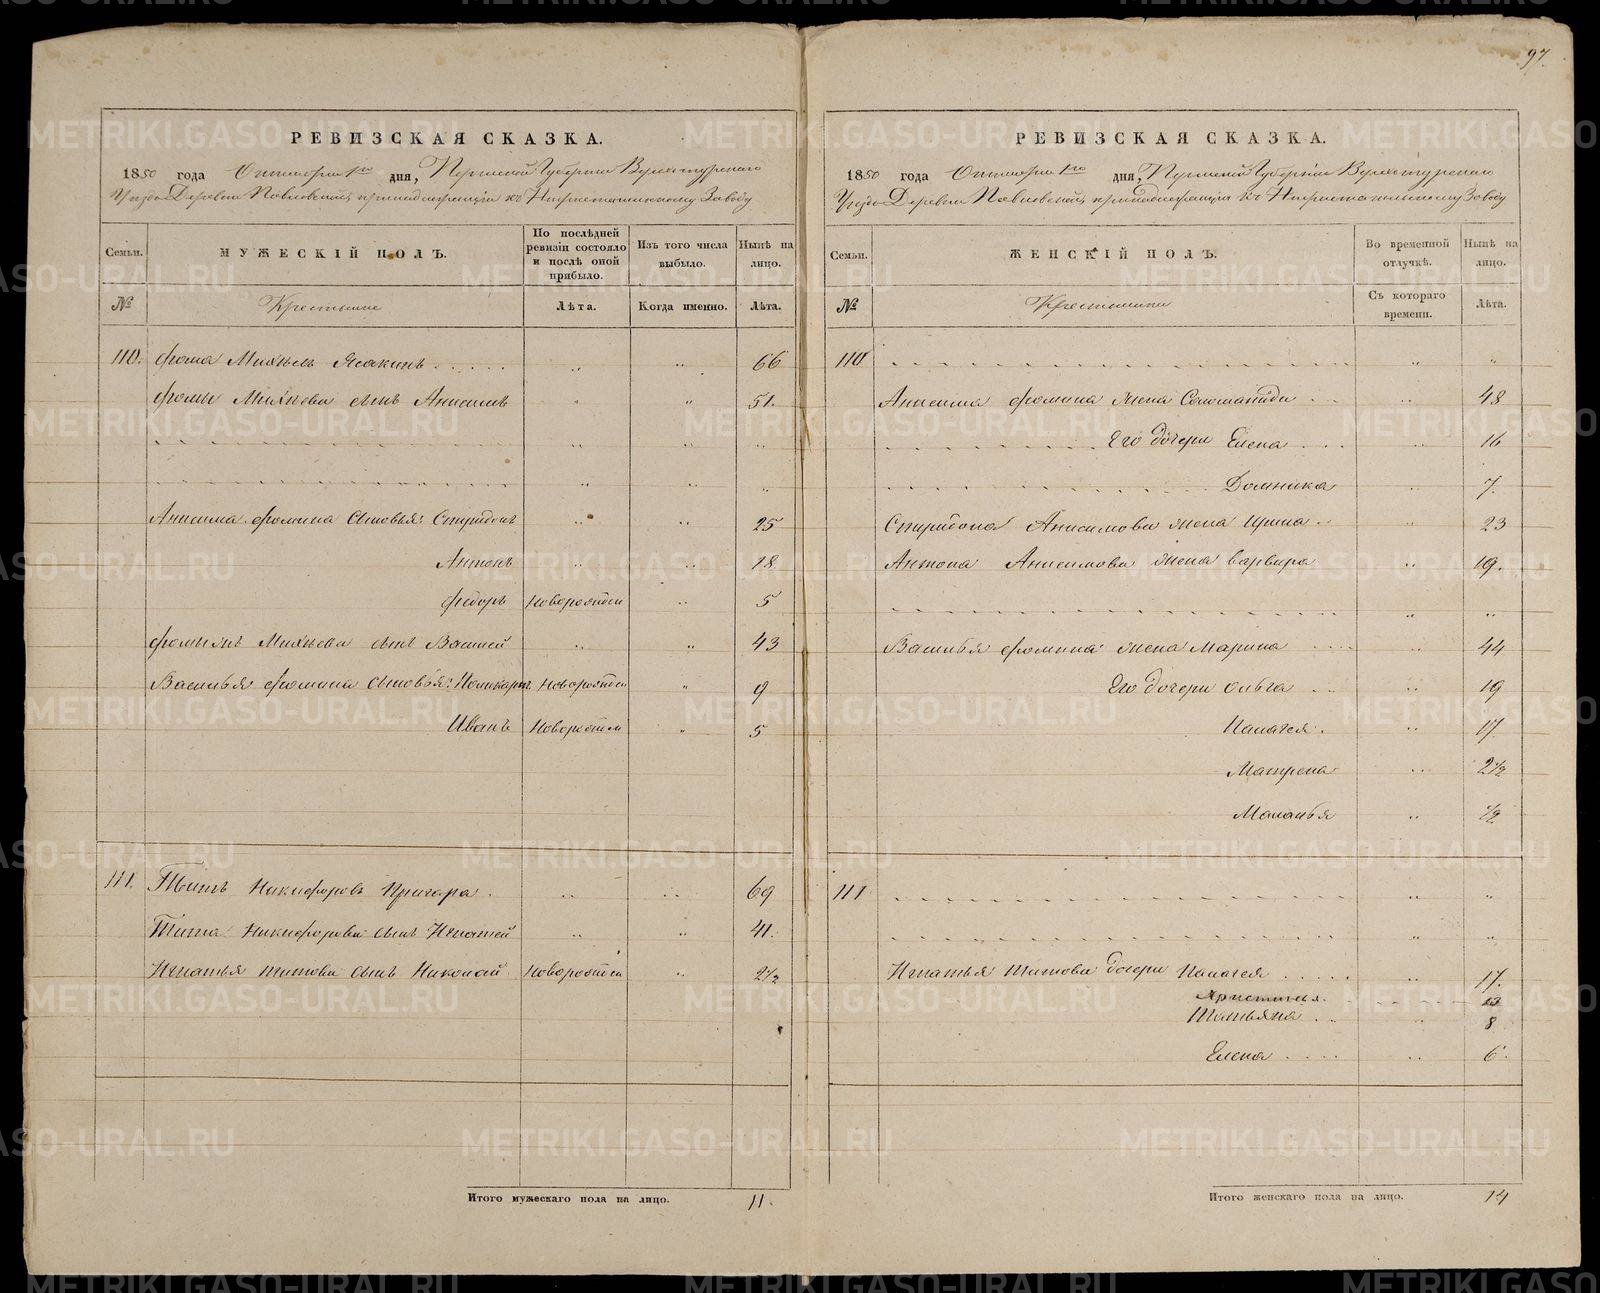 97.
РЕВИЗСКАЯ СКАЗКА.
1850 года Октября 1го дня, Пермской Губернии Верхотурского
Уезда Деревни Павловской, принадлежащiи къ Заводу
Семьи. МУЖЕСКІЙ ПОЛЪ. По послѣдней ревизіи состояло и послѣ оной прибыло. Изъ того числа выбыло. Нынѣ на лицо.
№ Крестьяне Лѣта. Когда именно. Лѣта.
110. Фома Михѣевъ 66
Фомы Михѣева сынъ Анисимъ 51.
Анисима Фомина Сыновья: Спиридонъ 25
Антонъ 18
Федоръ Новорожден 5
Михѣева сынъ Василей 43
Василья Фомина Сыновья: Поликарпъ Новорожден 9
Иванъ Новорожден 5
111. Титъ Никифоровъ 69
Тита Никифорова сынъ Игнатей 41.
Игнатья Титова сынъ Николай Новорожден 2 1/2
Итого мужескаго пола на лицо. 11.
РЕВИЗСКАЯ СКАЗКА.
1850 года Октября 1го дня, Пермской Губернiи Верхотурскаго
Уезда Деревни Павловской, принадлежащiя къ Заводу
Семьи. ЖЕНСКІЙ ПОЛЪ. Во временной отлучкѣ. Нынѣ на лицо.
№ Крестьянки Съ котораго времени. Лѣта.
110
Анисима Фомина жена Соломанида 48
Его дочери Елена 16
Домника 7.
Спиридона Анисимова жена Ирина 23
Антона Анисимова жена Варвара 19.
Василья Фомина жена Марина 44
Его дочери Ольга 19
Палагея. 17.
Матрена 2 1/2
Маланья 1/2
111
Игнатья Титова дочери Палагея 17.
Христинья. 13
Татьяна 8
Елена 6.
Итого женскаго пола на лицо. 14
METRIKI.GASO-URAL.RU